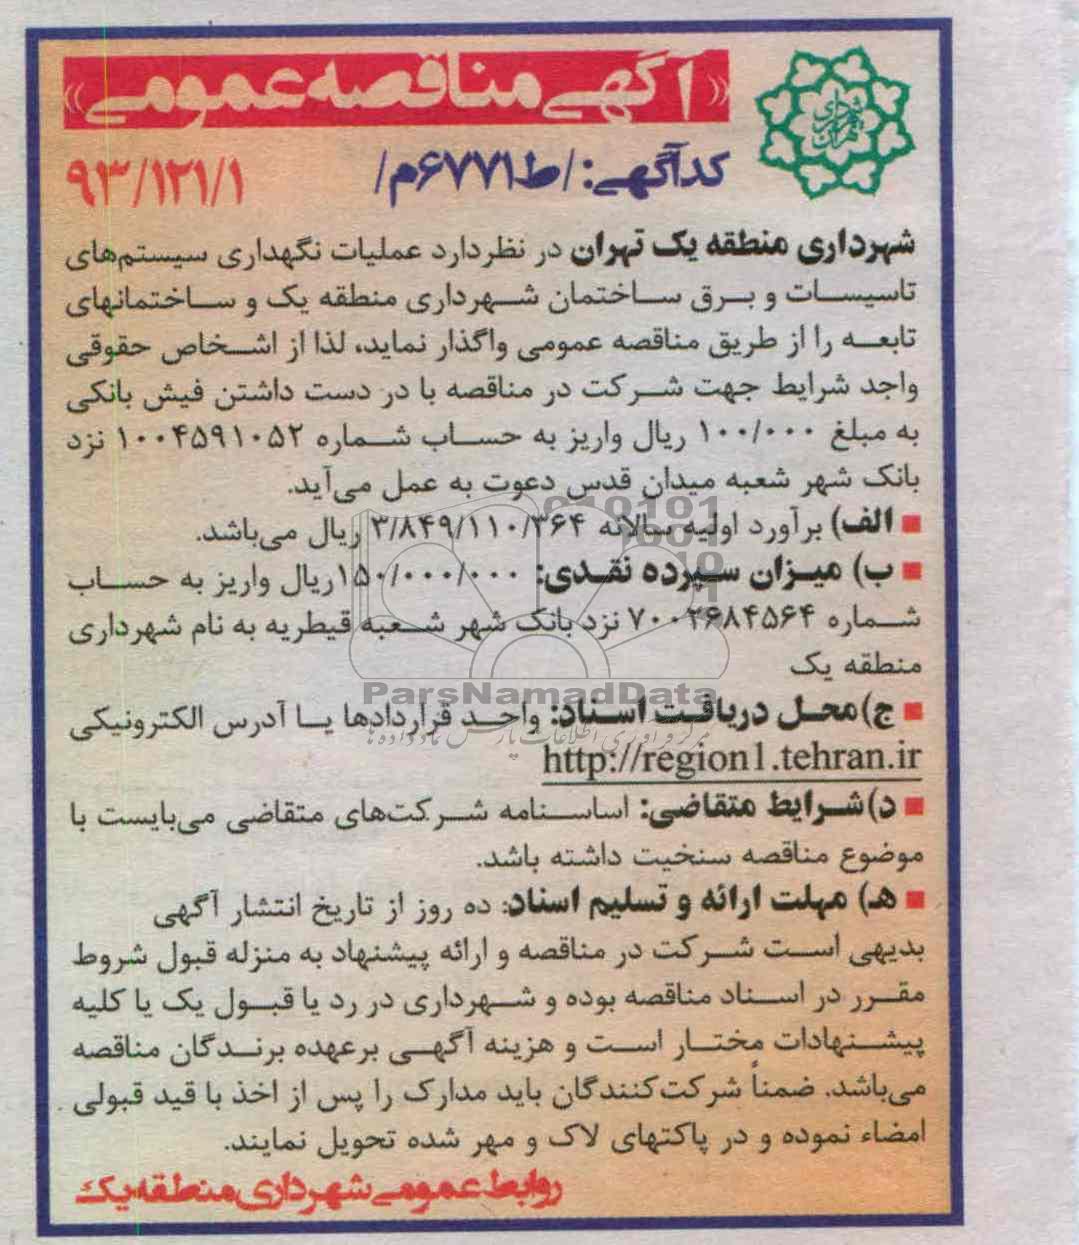 «آگهی مناقصه عمومی»
شهرداری تهران
کدآگهی: /ط۶۷۷۱م/
۹۳/۱۲۱/۱
شهرداری منطقه یک تهران در نظردارد عملیات نگهداری سیستم‌های
تاسیسات و برق ساختمان شهرداری منطقه یک و ساختمانهای
تابعه را از طریق مناقصه عمومی واگذار نماید، لذا از اشخاص حقوقی
واجد شرایط جهت شرکت در مناقصه با در دست داشتن فیش بانکی
به مبلغ ۱۰۰/۰۰۰ ریال واریز به حساب شماره ۱۰۰۴۵۹۱۰۵۲ نزد
بانک شهر شعبه میدان قدس دعوت به عمل می‌آید.
■ الف) برآورد اولیه سالانه ۳/۸۴۹/۱۱۰/۳۶۴ ریال می‌باشد.
■ ب) میزان سپرده نقدی: ۱۵۰/۰۰۰/۰۰۰ریال واریز به حساب
شماره ۷۰۰۲۶۸۴۵۶۴ نزد بانک شهر شعبه قیطریه به نام شهرداری
منطقه یک
ParsNamadData
■ ج)محل دریافت اسناد: واحد قراردادها یا آدرس الکترونیکی
مرکز فرآوری اطلاعات پارس نماد داده ها
http://region1.tehran.ir
■ د)شرایط متقاضی: اساسنامه شرکت‌های متقاضی می‌بایست با
موضوع مناقصه سنخیت داشته باشد.
■ هـ) مهلت ارائه و تسلیم اسناد: ده روز از تاریخ انتشار آگهی
بدیهی است شرکت در مناقصه و ارائه پیشنهاد به منزله قبول شروط
مقرر در اسناد مناقصه بوده و شهرداری در رد یا قبول یک یا کلیه
پیشنهادات مختار است و هزینه آگهی برعهده برندگان مناقصه
می‌باشد. ضمناً شرکت‌کنندگان باید مدارک را پس از اخذ با قید قبولی
امضاء نموده و در پاکتهای لاک و مهر شده تحویل نمایند.
روابط عمومی شهرداری منطقه یک